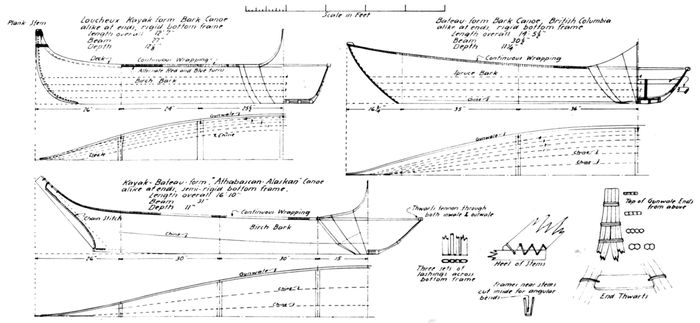 Scale in Feet
Plank Stem
Loucheux Kayak form Bark Canoe
alike at ends, rigid bottom frame
Length overall
Beam
Depth
Deck
Continuous Wrapping
Alternate Red and Blue turns
Birch Bark
26"
Gunwale
Chine
Deck
Bateau-form Bark Canoe, British Columbia
alike at ends, rigid bottom frame
Length overall
Beam
Depth
Continuous Wrapping
Spruce Bark
Chine
35"
36"
Gunwale
Kayak-Bateau-form, "Athabascan-Alaskan" Canoe
alike at ends, semi-rigid bottom frame,
Length overall 16' 10"
Beam 31"
Depth 11"
Chain Stitch
Continuous Wrapping
Birch Bark
Chine
Gunwale
Thwarts tennon through
both inwale & outwale
Three sets of
lashings across
bottom frame
Heel of Stems
frames near stems
cut inside for angular
bends
Top of Gunwale Ends
from above
End Thwarts